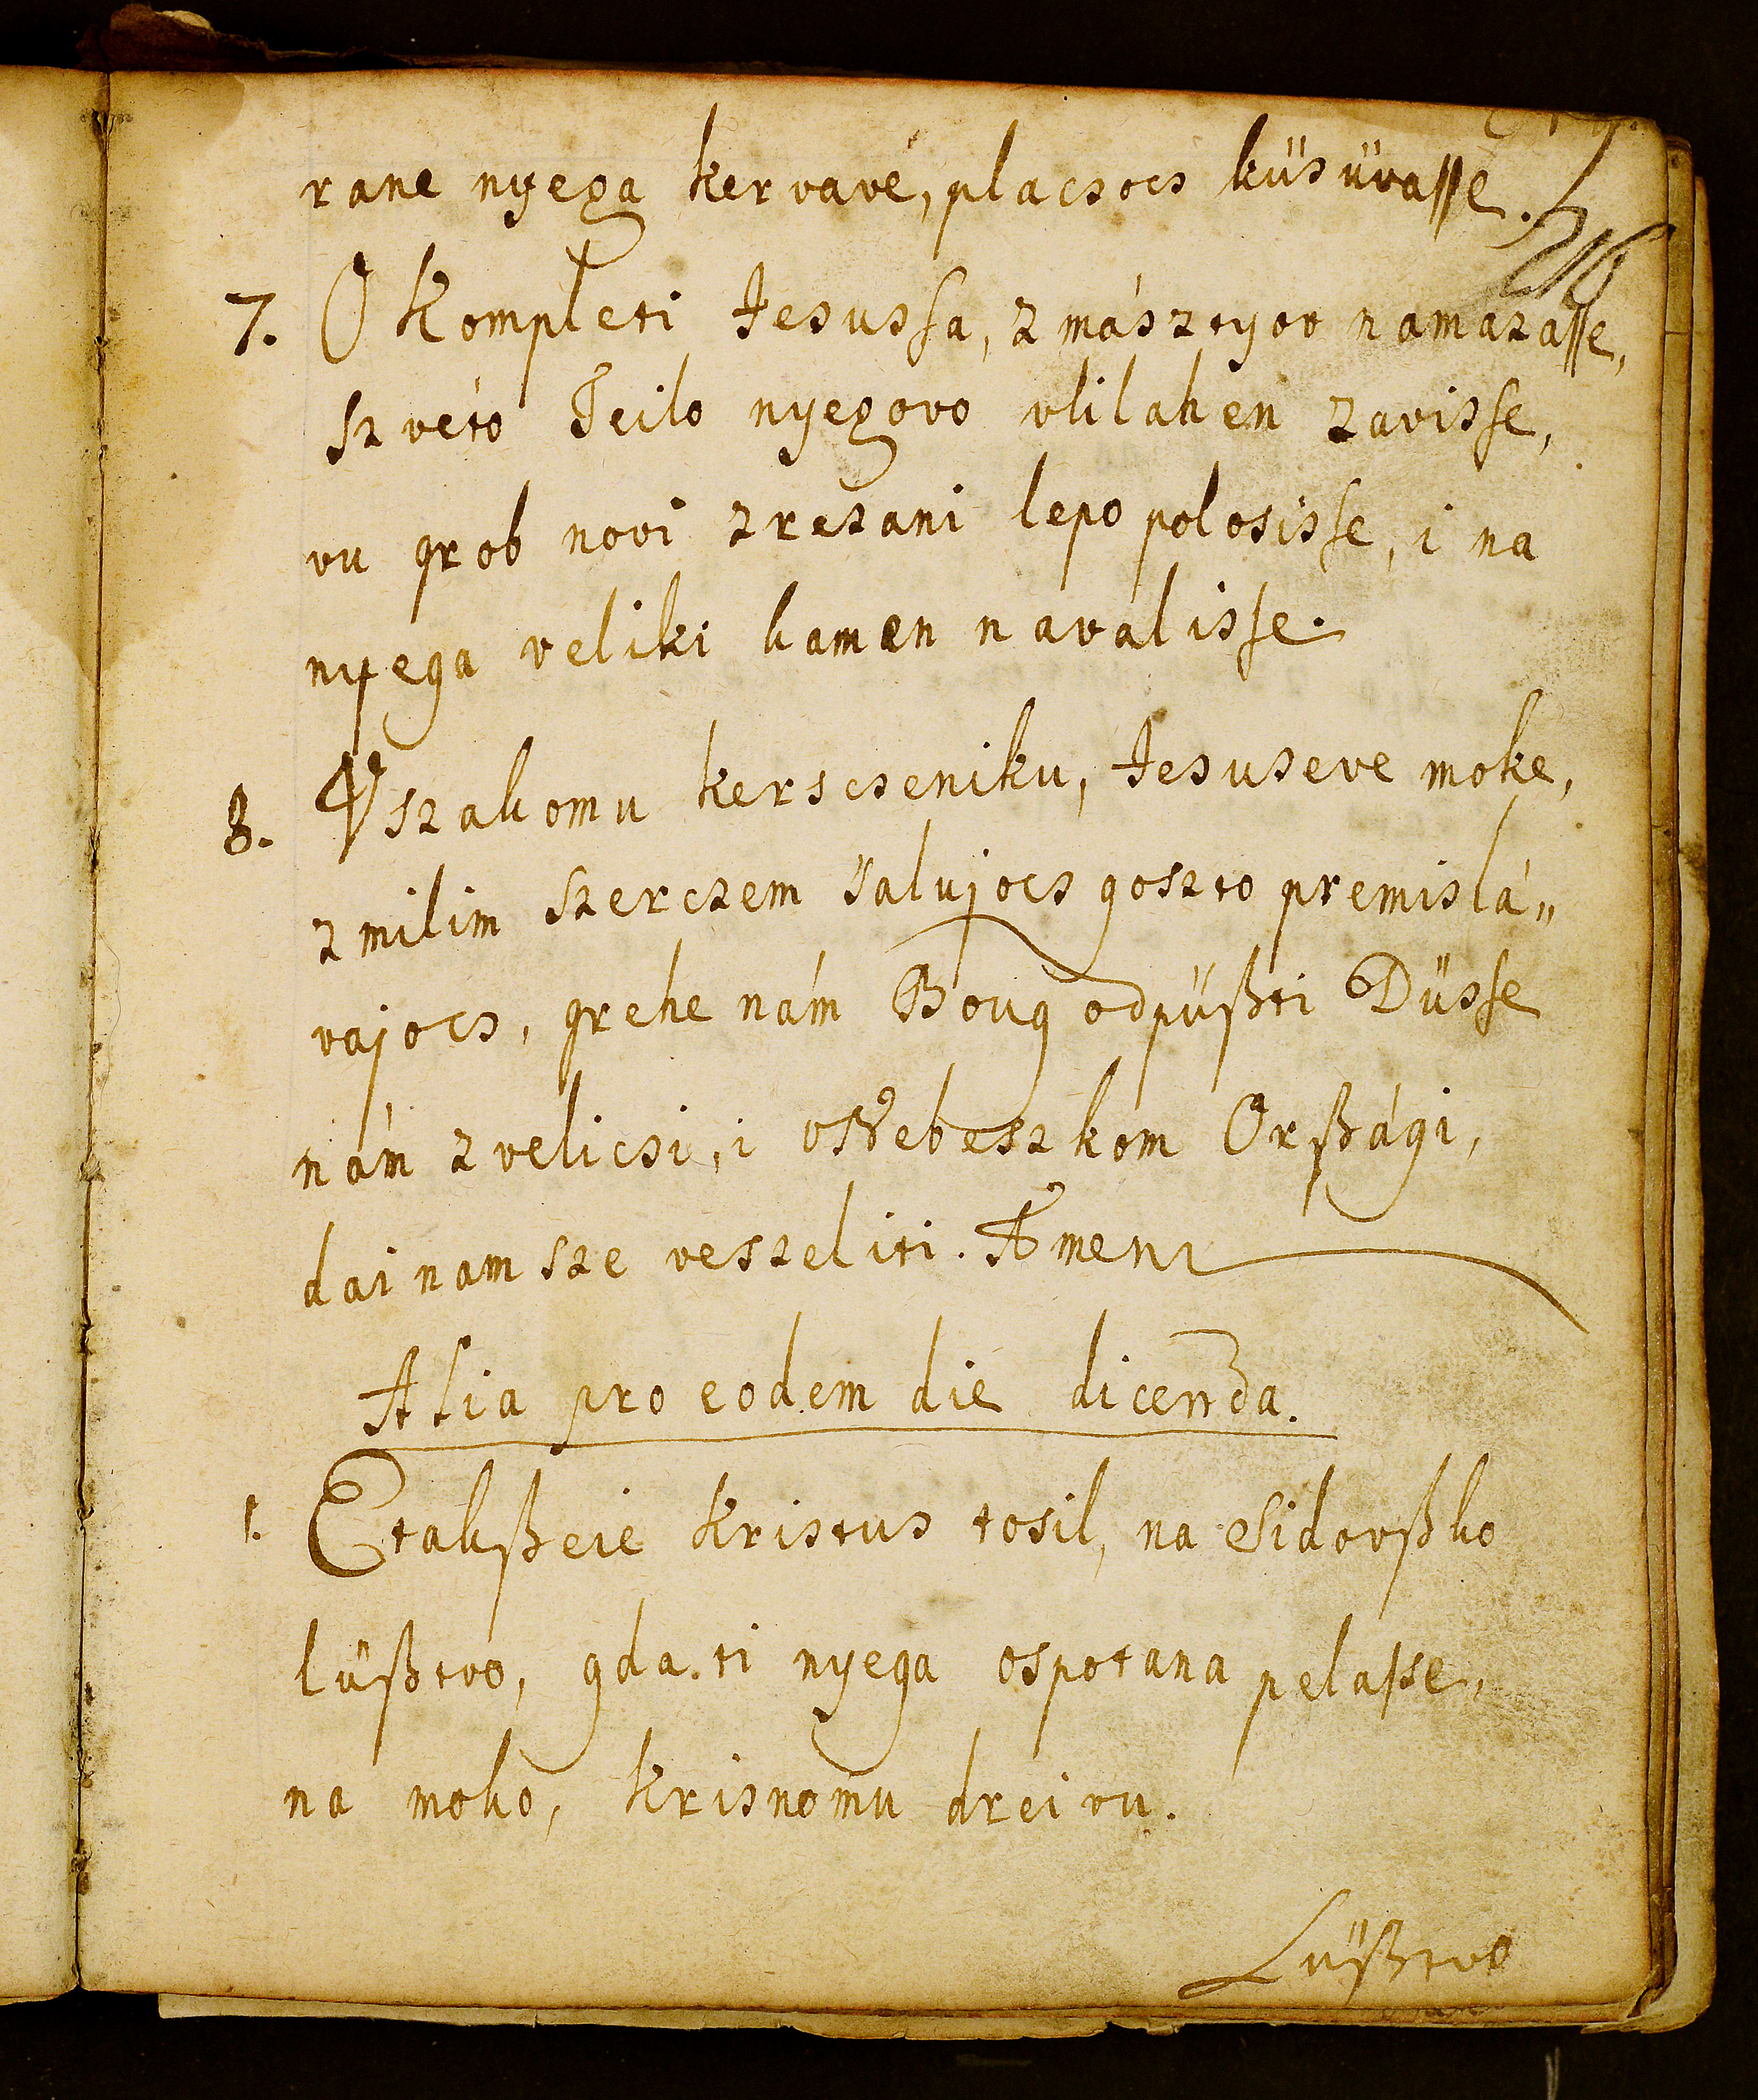 rane nyega kervavé, placsocs küsüvasse.
7. O Kompleti Jesussa, z másztyov namazasse,
szvéto Teilo nyegovo vlilahen zavisse,
vu grob novi zrezani lepo polosisse, i na
nyega veliki kamen navalisse.
8. Vszakomu kerscseniku, Jesuseve moke,
z milim szerczem salujocs goszto premislá„
vajocs, grehe nám Boug odpüßti Düsse
nám zvelicsi, i vNebeszkom Orßági,
dai nam sze veszeliti. Amen
Alia pro eodem die dicenda.
1. Etakßeie Kristus tosil, na Sidovßko
lüßtvo, gda ti nyega ospotana pelasse,
na moko, krisnomu dreivu.
Lüßtvo